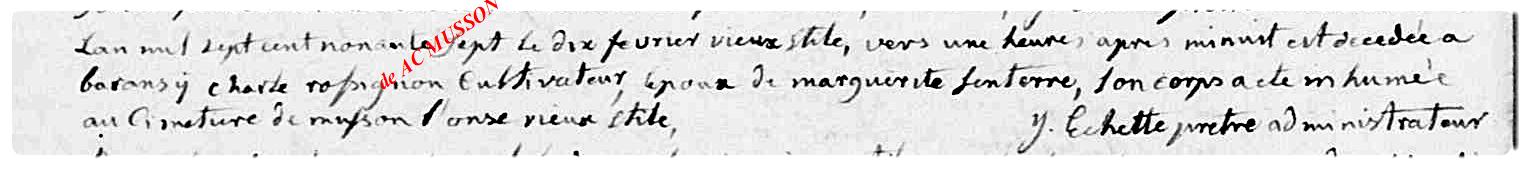 Lan mil sept cent nonante sept le dix fevrier vieux stile, vers une heure apres minuit est decedée a
baransÿ charle rossignon Cultivateur, epoux de marguerite Lenterre, son corps a ete inhumée
au Cimetiere de musson l'onse vieux stile,
y. Echette pretre administrateur
de AC MUSSON